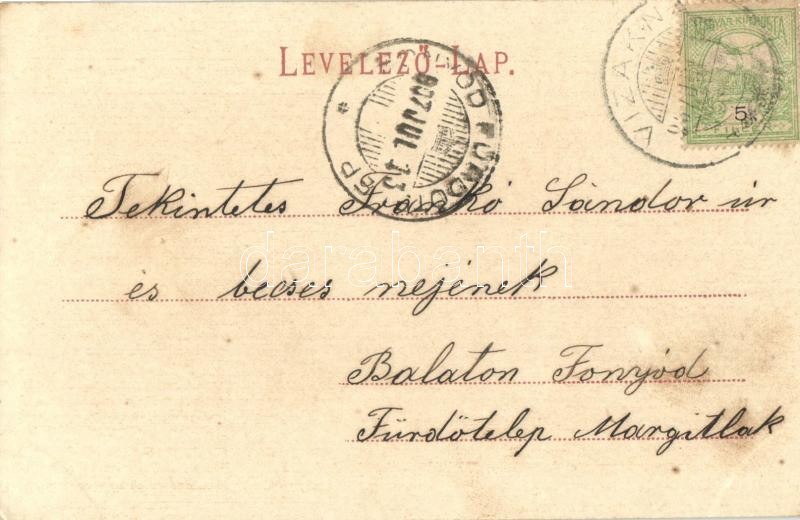 LEVELEZŐ-LAP.
907 JUL 13
VIZAKN
MAGYAR KIR. POSTA
5
Tekintetes Frankó Sándor úr
és becses nejének
darabanth
Balaton Fonyód
Fürdőtelep Margitlak